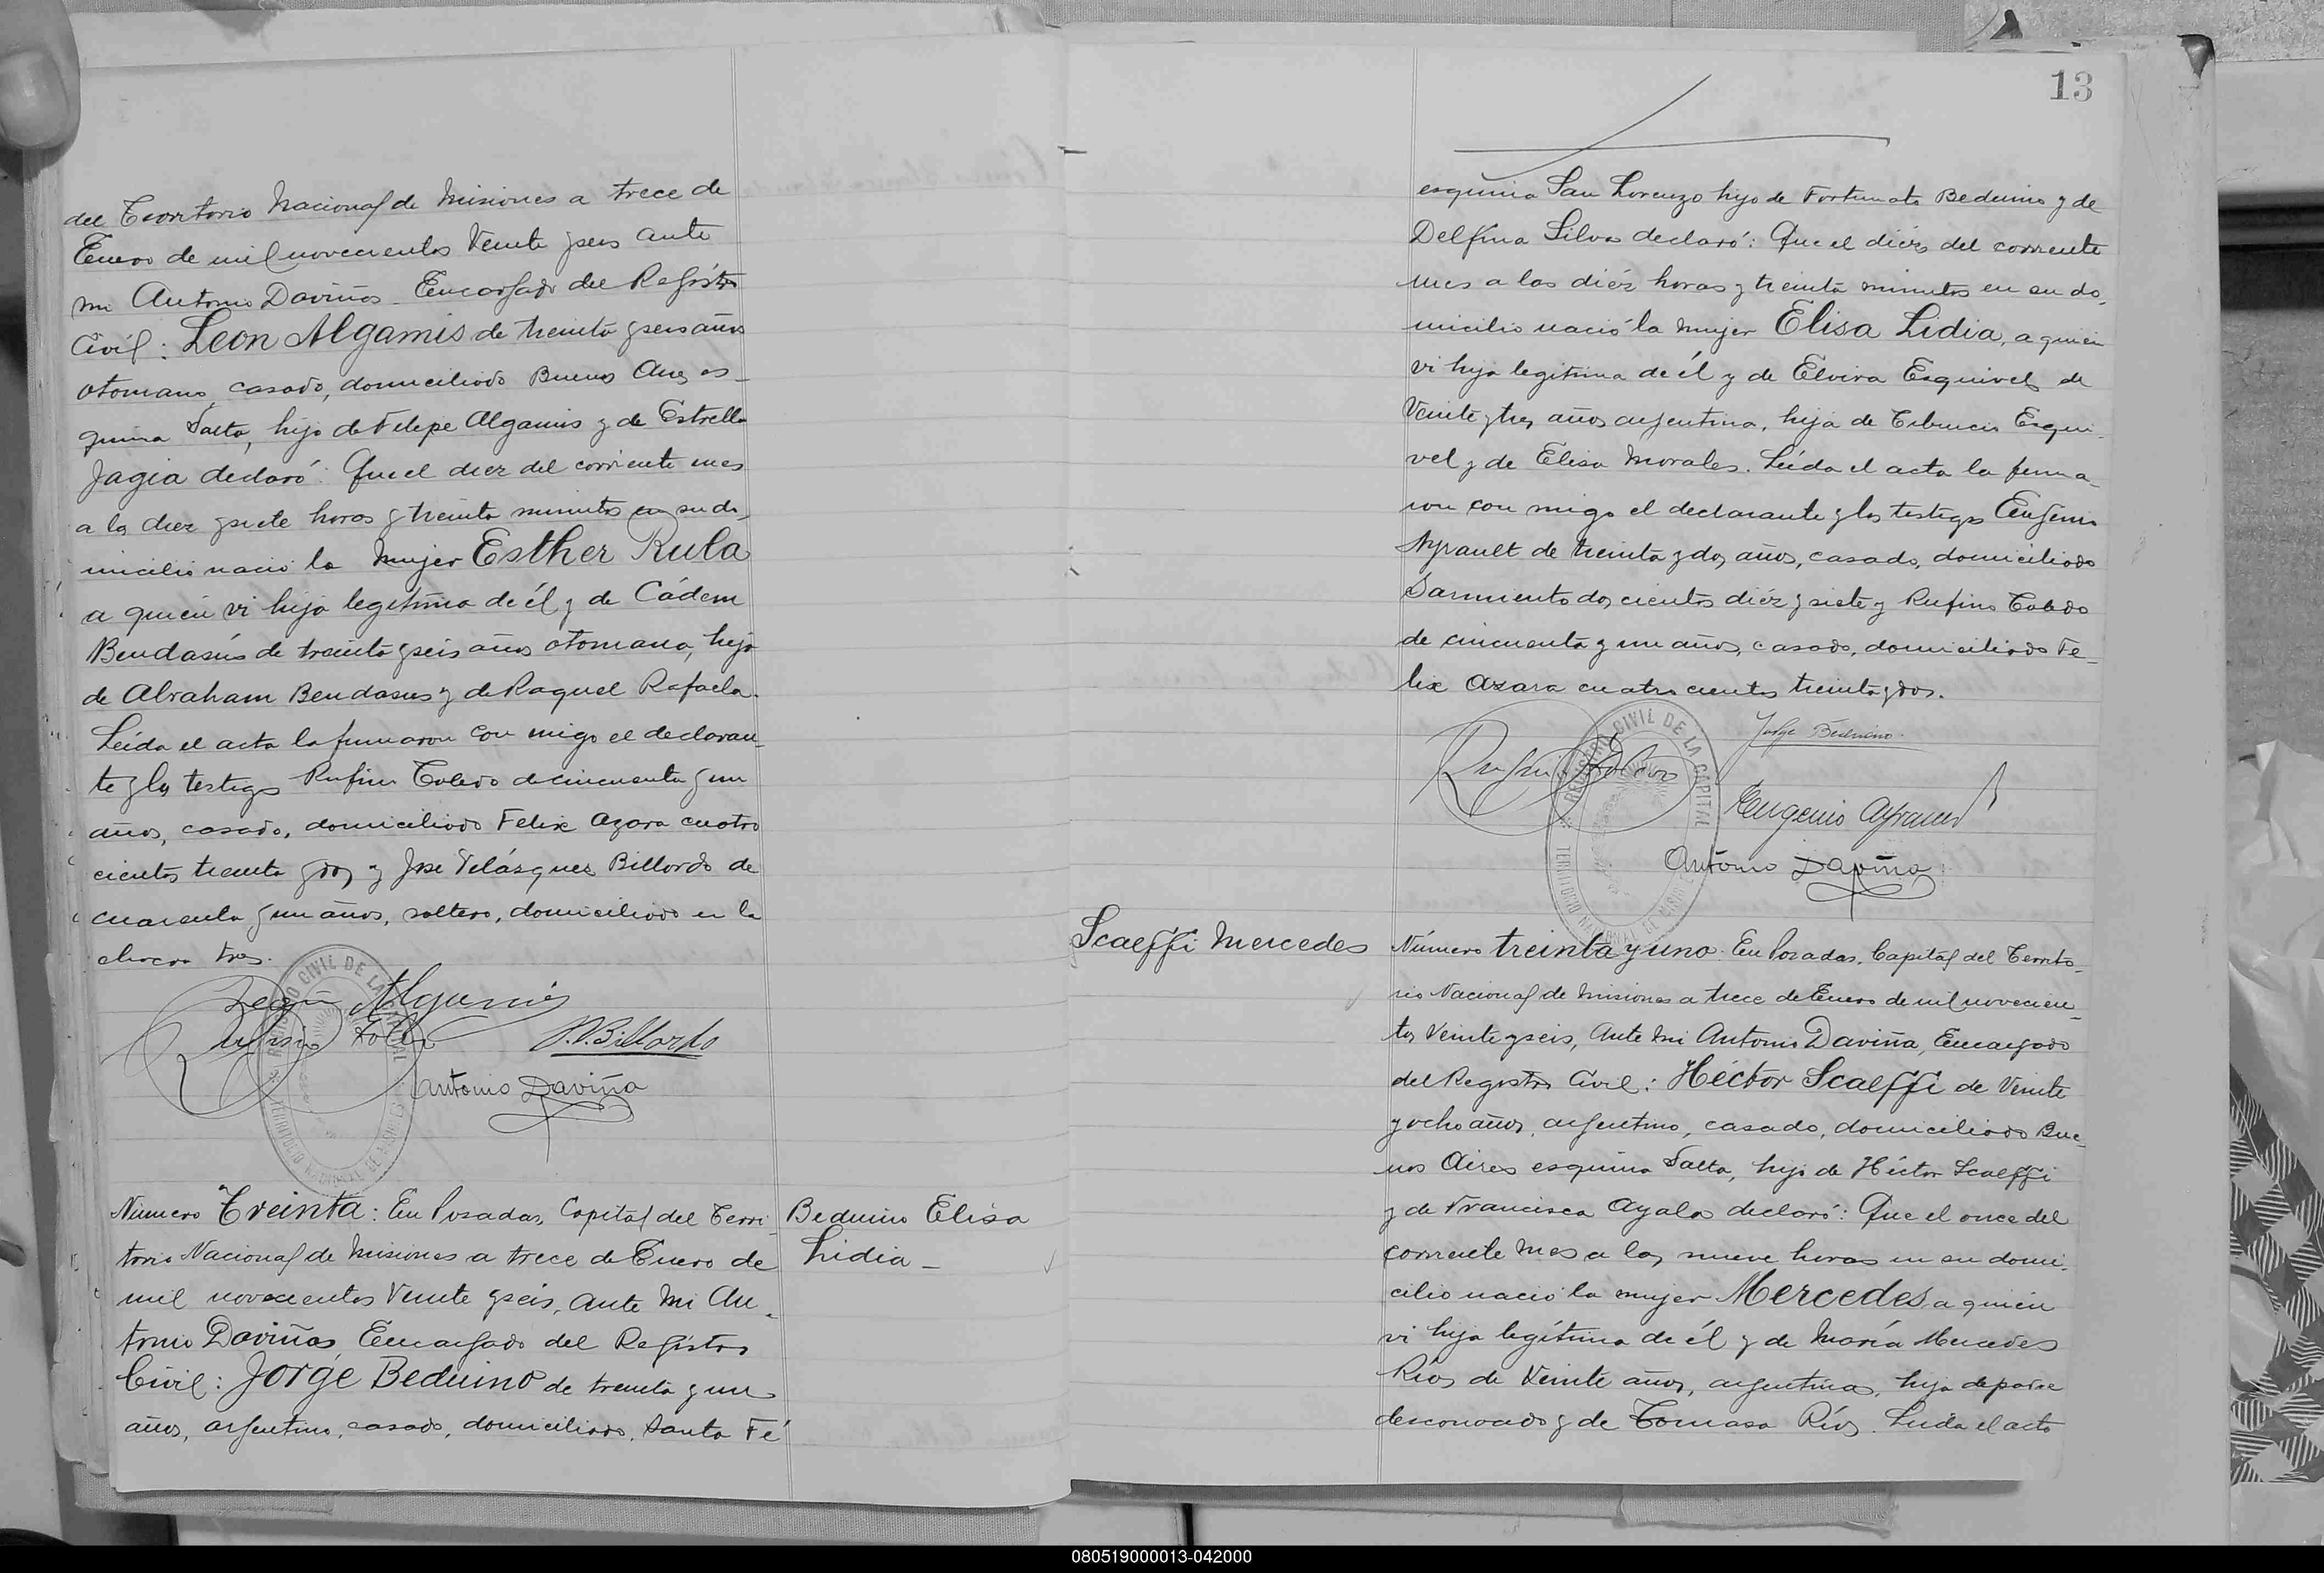 del Territorio Nacional de Misiones a trece de
Enero de mil novecientos Veinte y seis ante
mi Antonio Daviña Encargado del Registro
Civil: Leon Algamis de treinta y seis años
otomano, casado, domiciliado Buenos Aires es-
quina Salta, hijo de Felipe Algamis y de Estrella
Jagia declaró: Que el diez del corriente mes
a las diez y siete horas y treinta minutos en su do-
micilio nació la mujer Esther Rula
a quien vi hija legítima de él y de Cádem
Bendasús de treinta y seis años otomana, hija
de Abraham Bendasus y de Raquel Rafaela.
Leída el acta la firmaron con migo el declaran-
te y los testigos Rufino Toledo de cincuenta y un
años, casado, domiciliado Felix Azara cuatro
cientos treinta y dos y Jose Velásquez Billordo de
cuarenta y un años, soltero, domiciliado en la
chacra tres.
REGISTRO CIVIL DE LA CAPITAL
TERRITORIO NACIONAL DE MISIONES
León Algamis
Rufino Toledo
J.V.Billordo
Antonio Daviña
Número Treinta: En Posadas, Capital del Terri-
torio Nacional de Misiones a trece de Enero de
mil novecientos Veinte y seis, ante Mi An-
tonio Daviña Encargado del Registro
Civil: Jorge Beduino de treinta y un
años, argentino, casado, domiciliado, Santa Fé
Beduino Elisa
Lidia -
13
esquina San Lorenzo hijo de Fortunato Beduino y de
Delfina Silva declaró: Que el diéz del corriente
mes a las diéz horas y treinta minutos en su do-
micilio nació la mujer Elisa Lidia, a quien
vi hija legitima de él y de Elvira Esquivel de
Veinte y tres años argentina, hija de Tiburcio Esqui-
vel y de Elisa Morales. Leída el acta la firma-
ron con migo el declarante y los testigos Eugenio
Ayrault de treinta y dos años, casado, domiciliado
Sarmiento dos cientos diéz y siete y Rufino Toledo
de cincuenta y un años, casado, domiciliado Fe-
lix Azara cuatro cientos treinta y dos.
Jorge Beduino.
Rufino Toledo
REGISTRO CIVIL DE LA CAPITAL
TERRITORIO NACIONAL DE MISIONES
Eugenio Ayrault
Antonio Daviña
Scaeffi Mercedes
Número treinta y uno: En Posadas, Capital del Territo-
rio Nacional de Misiones a trece de Enero de mil novecien-
tos Veinte y seis, Ante Mi Antonio Daviña, Encargado
del Registro Civil: Héctor Scaeffi de Veinte
y ocho años, argentino, casado, domiciliado Bue-
nos Aires esquina Salta, hijo de Héctor Scaeffi
y de Francisca Ayala declaró: Que el once del
corriente Mes a las nueve horas en su domi-
cilio nació la mujer Mercedes, a quién
vi hija legítima de él y de María Mercedes
Ríos de Veinte años, argentina, hija de padre
desconocido y de Tomasa Ríos. Leida el acta
080519000013-042000